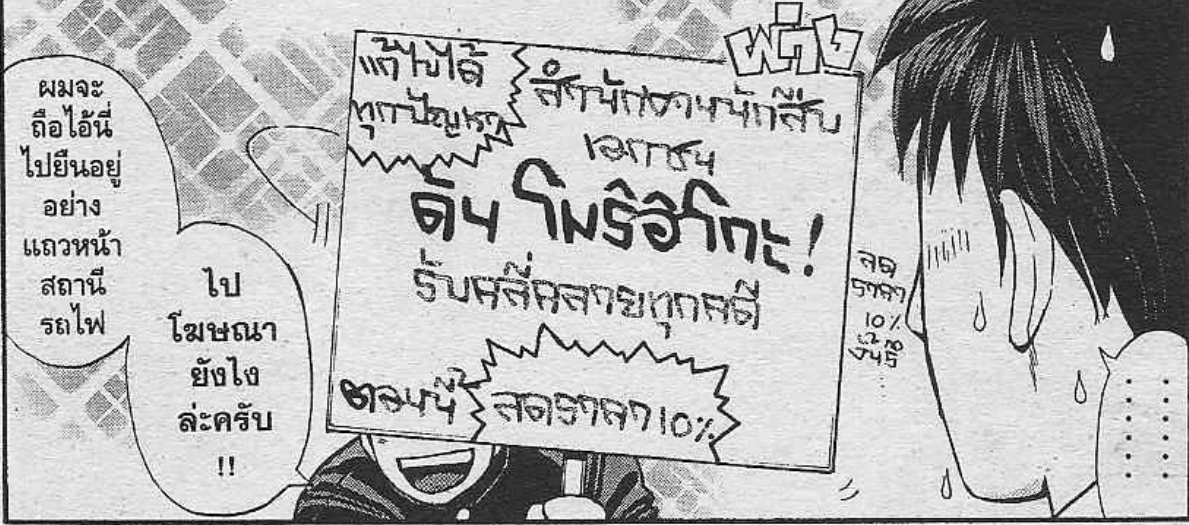 ผมจะ
ถือไอ้นี่
ไปยืนอยู่
อย่าง
แถวหน้า
สถานี
รถไฟ
ไป
โฆษณา
ยังไง
ล่ะครับ
!!
แก้ไขได้
ทุกปัญหา
ผ่าง
สำนักงานนักสืบ
เอกชน
ดัน โมริฮิโกะ!
รับคลี่คลายทุกคดี
ตอนนี้
ลดราคา10%
ลด
ราคา
10%